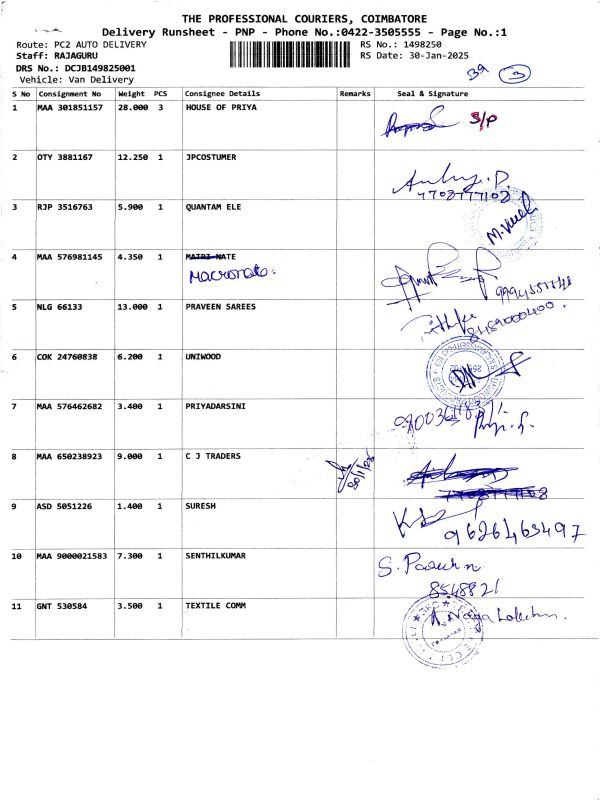 THE PROFESSIONAL COURIERS, COIMBATORE
Delivery Runsheet - PNP - Phone No.:0422-3505555 - Page No.:1
Route: PC2 AUTO DELIVERY RS No.: 1498250
Staff: RAJAGURU RS Date: 30-Jan-2025
DRS No.: DCJB149825001
Vehicle: Van Delivery
39 3
S No Consignment No Weight PCS Consignee Details Remarks Seal & Signature
1 MAA 301851157 28.000 3 HOUSE OF PRIYA
S/P
2 OTY 3881167 12.250 1 JPCOSTUMER
7708777108
3 RJP 3516763 5.900 1 QUANTAM ELE
4 MAA 576981145 4.350 1 MATRI-NATE
Macronate.
5 NLG 66133 13.000 1 PRAVEEN SAREES
8489000400.
6 COK 24760838 6.200 1 UNIWOOD
7 MAA 576462682 3.400 1 PRIYADARSINI
8 MAA 650238923 9.000 1 C J TRADERS
9 ASD 5051226 1.400 1 SURESH
9626463497
10 MAA 9000021583 7.300 1 SENTHILKUMAR
8548821
11 GNT 530584 3.500 1 TEXTILE COMM